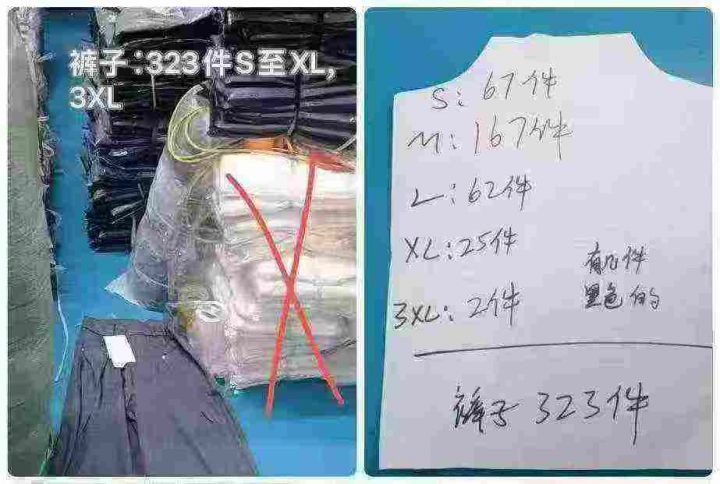 裤子:323件S至XL,
3XL
S: 67件
M: 167件
L: 62件
XL: 25件
有几件
黑色的
3XL: 2件
裤子 323件